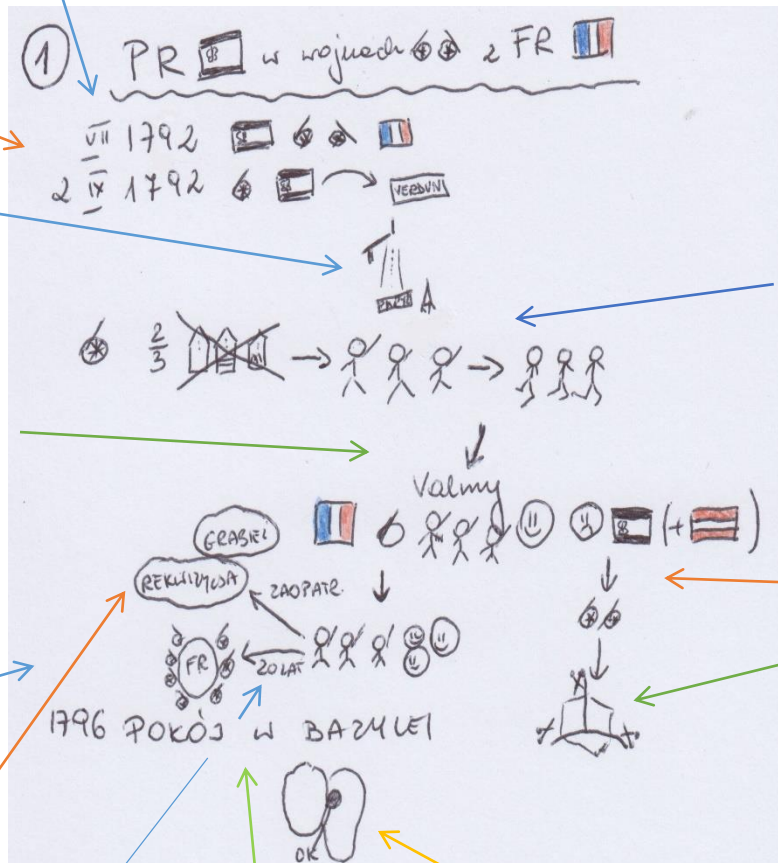 1 PR w wojnach z FR
VII 1792
2 IX 1792 VERDUN
2/3
Valmy
GRABIEŻ (+ )
REKWIZYCJA ZAOPATR.
FR 20 LAT
1796 POKÓJ W BAZYLEI
OK